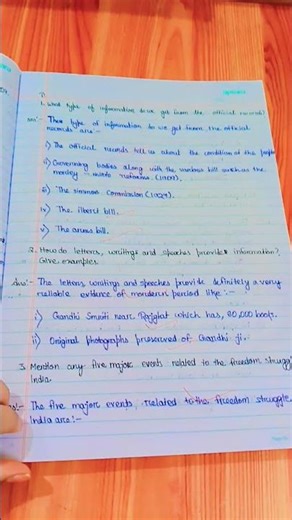 1. What type of information do we get from the official records?
Ans:- The type of information do we get from the official records are:-
i) The official records tell us about the condition of the people
ii) Governing bodies along with the various bill such as the morley minto reforms (1909).
iii) The simmons Commission (1927).
iv) The Ilbert bill.
v) The armes bill.
2. How do letters, writings and speeches provide information? Give examples
Ans:- The letters writings and speeches provide definitely a very reliable evidence of mondern period like:-
i) Gandhi Smriti near Rajghat which has, 20,000 books.
ii) Original photographs preserved of Gandhi ji.
3. Mention any five major events related to the freedom struggle India.
The five major events related to the freedom struggle India are:-